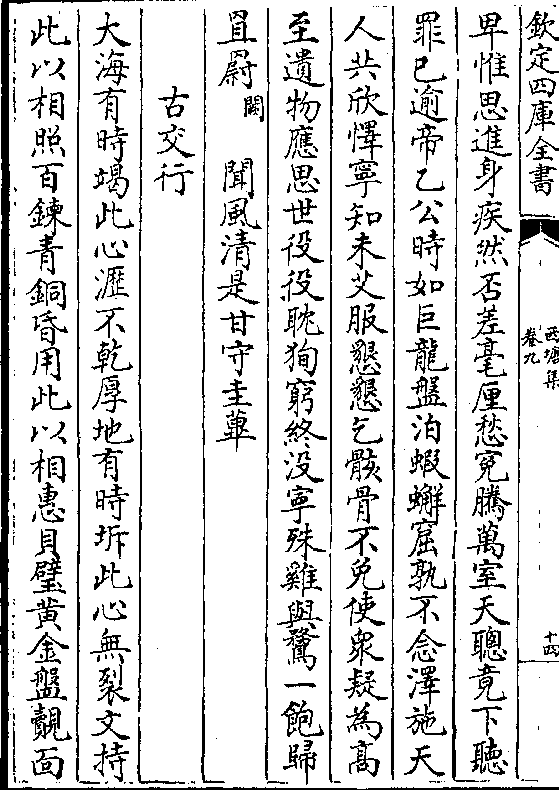 欽定四庫全書
西塘集
卷九
十四
卑惟思進身疾然否差毫厘愁冤騰萬室天聰竟下聽
罪已逾帝乙公時如巨龍盤泊蝦蠏窟孰不念澤施天
人共欣懌寧知未艾服懇懇乞骸骨不免使衆疑為高
至遺物應思世役役耽狥窮終没寧殊雞與鶩一飽歸
罝罻闕 聞風清是甘守圭蓽
古交行
大海有時竭此心瀝不乾厚地有時坼此心無裂文持
此以相照百鍊青銅昏用此以相惠貝璧黄金盤覿面